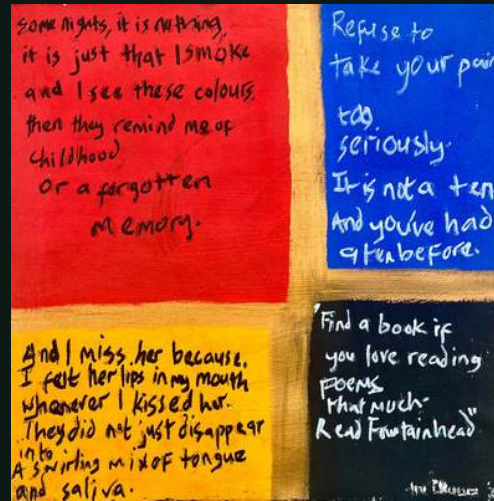 some nights, it is nothing,
it is just that I smoke
and I see these colours.
then they remind me of
childhood
or a forgotten
memory.
Refuse to
take your pain
too
seriously.
It is not a ten
And you've had
a ten before.
And I miss her because.
I felt her lips in my mouth
whenever I kissed her.
They did not just disappear
into
A swirling mix of tongue
and saliva.
"Find a book if
you love reading
poems
that much.
Read Fountainhead"